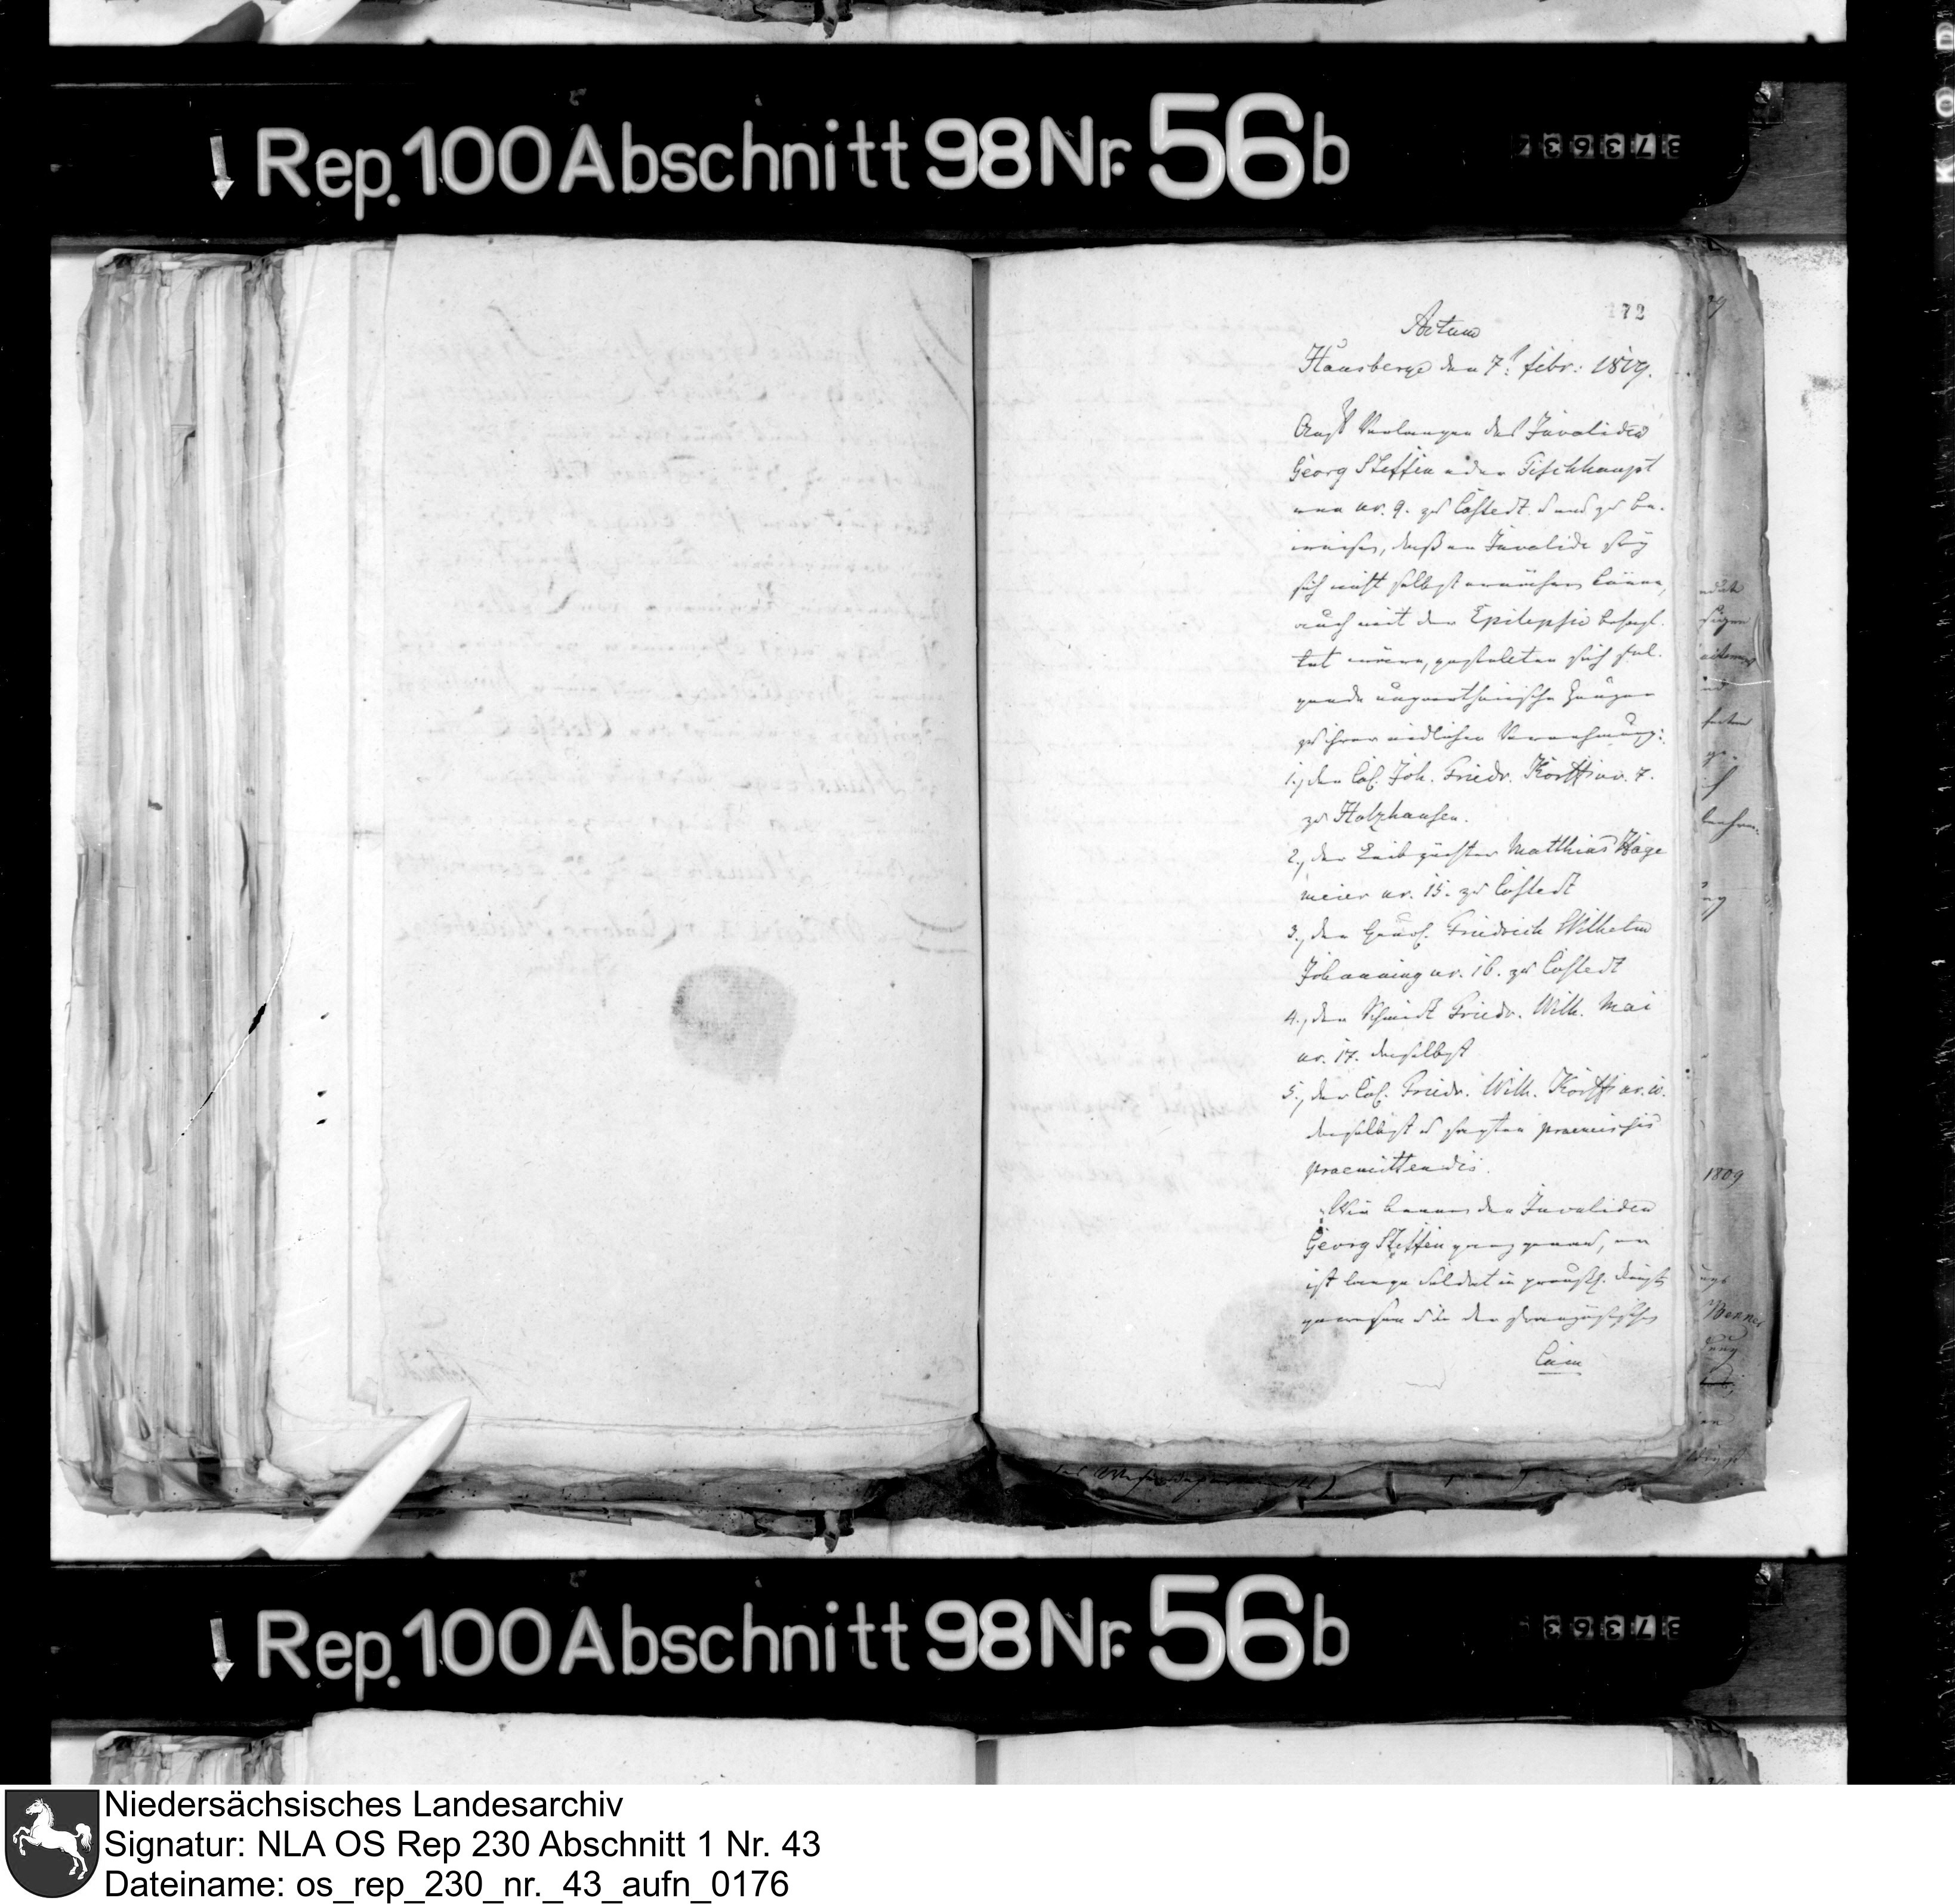 Rep. 100 Abschnitt 98 Nr. 56b
172
Actum
Hausberge den 7t. febr: 1809.
Auf Verlangen des Invaliden
Georg Steffen oder Fischhaupt
von nr. 9. zu Costedt und zu be-
weisen, daß er Invalide sey
sich nicht selbst ernähren könne,
auch mit der Epilepsie behaf-
tet wäre, gestelleten sich fol-
gende unpartheiische Zeugen
zu ihrer eidlichen Vernehmung:
1., der Col. Joh. Friedr. Korff nr. 7.
zu Holzhausen.
2., der Leibzüchter Matthias Hage
meier nr. 15. zu Costedt
3., der Friedrich Wilhelm
Johanning nr. 16. zu Costedt
4., der Schmidt Friedr. Wilh. Mai
nr. 17. daselbst
5., der Col. Friedr. Wilh. Korff nr. 10.
daselbst u sagten praemissis
praemittendis.
Wir kennen den Invaliden
Georg Steffen ganz genau, er
ist lange Soldat in preußs. Dienste
gewesen u in der französischen
1809
Rep. 100 Abschnitt 98 Nr. 56b
Niedersächsisches Landesarchiv
Signatur: NLA OS Rep 230 Abschnitt 1 Nr. 43
Dateiname: os_rep_230_nr._43_aufn_0176